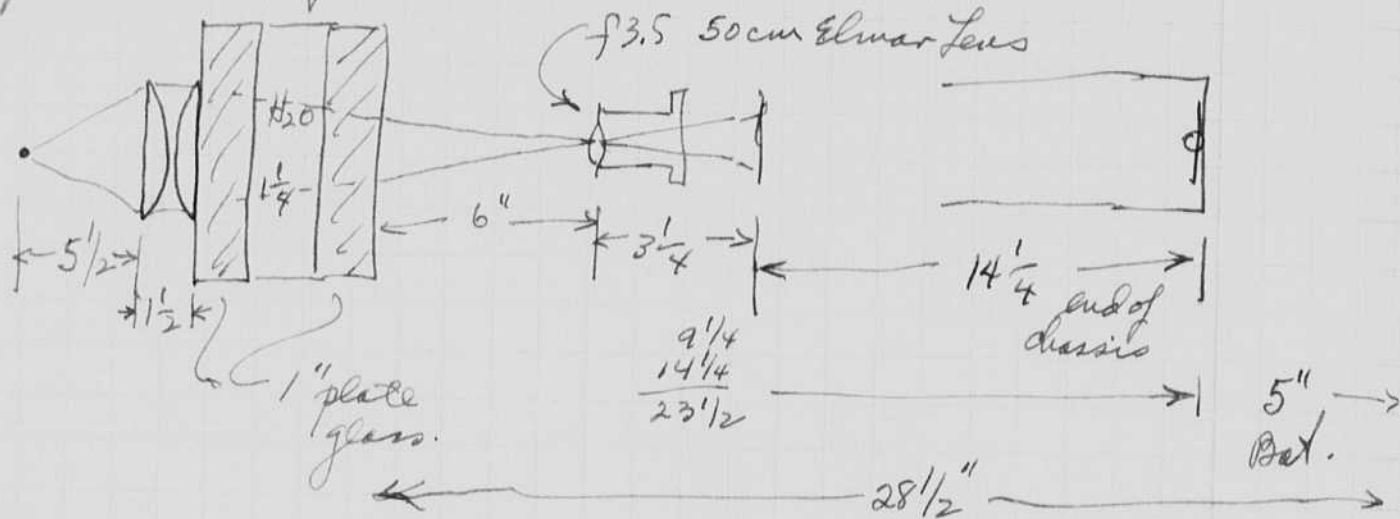 f3.5 50cm Elmar Lens
H2O
1 1/4
6"
5 1/2
3 1/4
14 1/4
end of
chassis
1 1/2
9 1/4
14 1/4
23 1/2
1" plate
glass.
5"
Bat.
28 1/2"